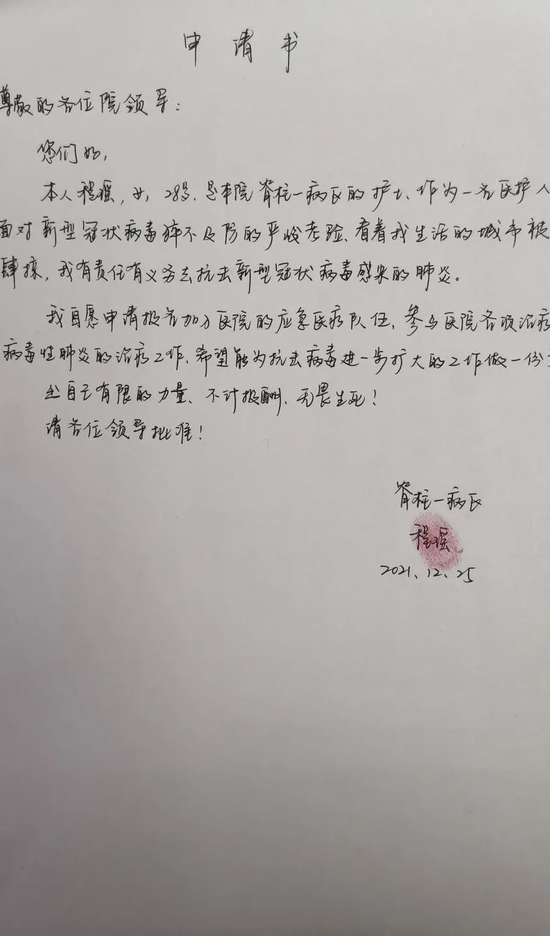 申请书
尊敬的各位院领导：
您们好，
本人程瑶，女，28岁，是本院脊柱一病区的护士，作为一名医护人
面对新型冠状病毒猝不及防的严峻考验，看着我生活的城市被
肆掠，我有责任有义务去抗击新型冠状病毒感染的肺炎。
我自愿申请报名加入医院的应急医疗队伍，参与医院各项治疗
病毒性肺炎的治疗工作，希望能为抗击病毒进一步扩大的工作做一份
出自己有限的力量，不计报酬，无畏生死！
请各位领导批准！
脊柱一病区
程瑶
2021.12.25